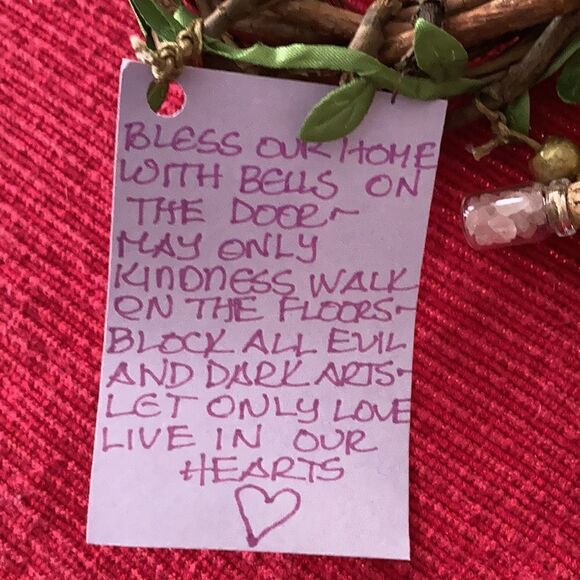 BLESS OUR HOME
WITH BELLS ON
THE DOOR~
MAY ONLY
KINDNESS WALK
ON THE FLOORS~
BLOCK ALL EVIL
AND DARK ARTS~
LET ONLY LOVE
LIVE IN OUR
HEARTS